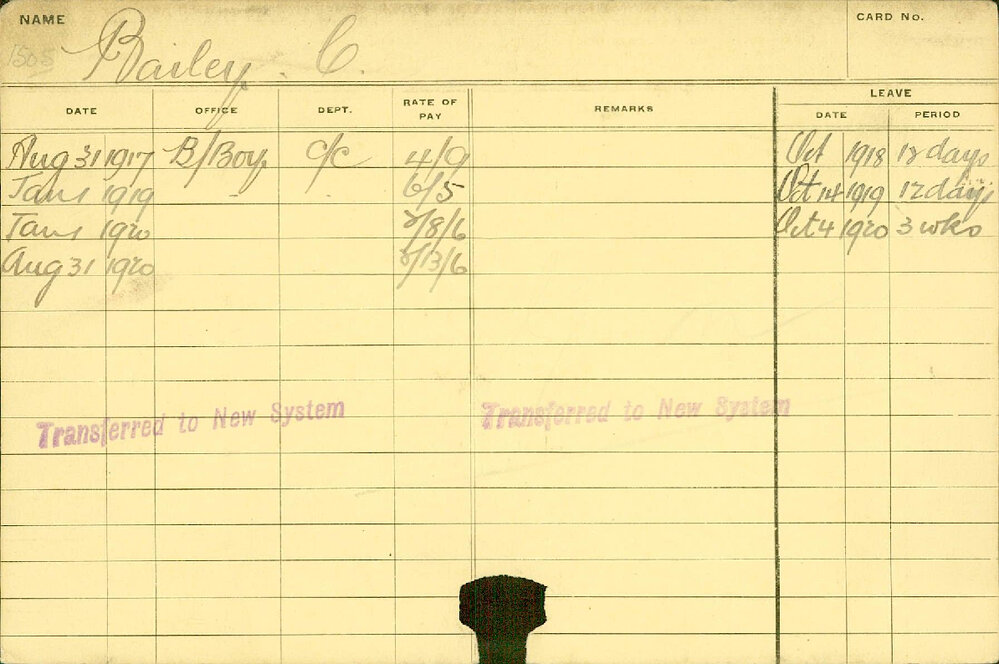 NAME
CARD No.
1505
Bailey. C.
LEAVE
DATE OFFICE DEPT. RATE OF PAY REMARKS DATE PERIOD
Aug 31 1917 B/Boy c/c 4/9 Oct 1918 12 days
Jan 1 1919 - - 6/5 Oct 14 1919 12 days
Jan 1 1920 /8/6 Oct 4 1920 3 wks
Aug 31 1920 /13/6
Transferred to New System Transferred to New System